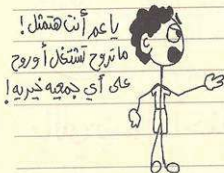 يا عم أنت هتمثل!
ما تروح تشتغل أو روح
على أي جمعيه خيريه!